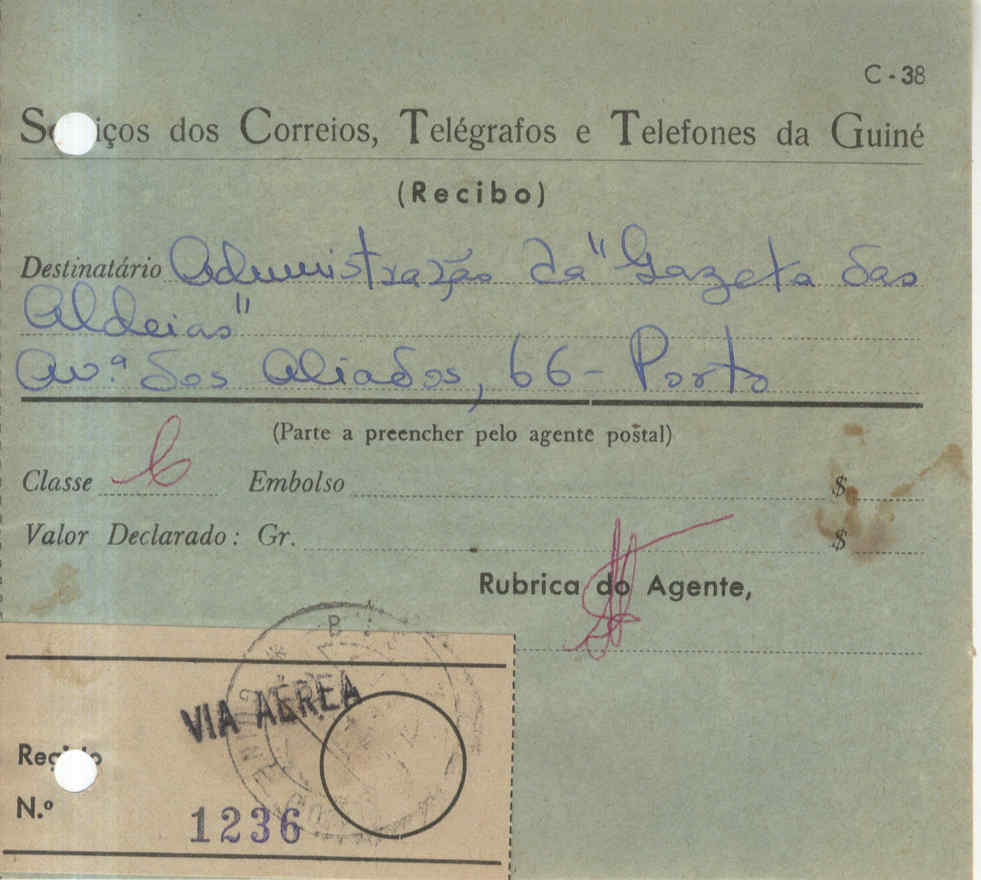 C - 38
Serviços dos Correios, Telégrafos e Telefones da Guiné
(Recibo)
Destinatário Administração da "Gazeta das
Aldeias"
Av.ª dos Aliados, 66 - Porto
(Parte a preencher pelo agente postal)
Classe Embolso $
Valor Declarado: Gr. $
Rubrica do Agente,
VIA AÉREA
N.º 1236